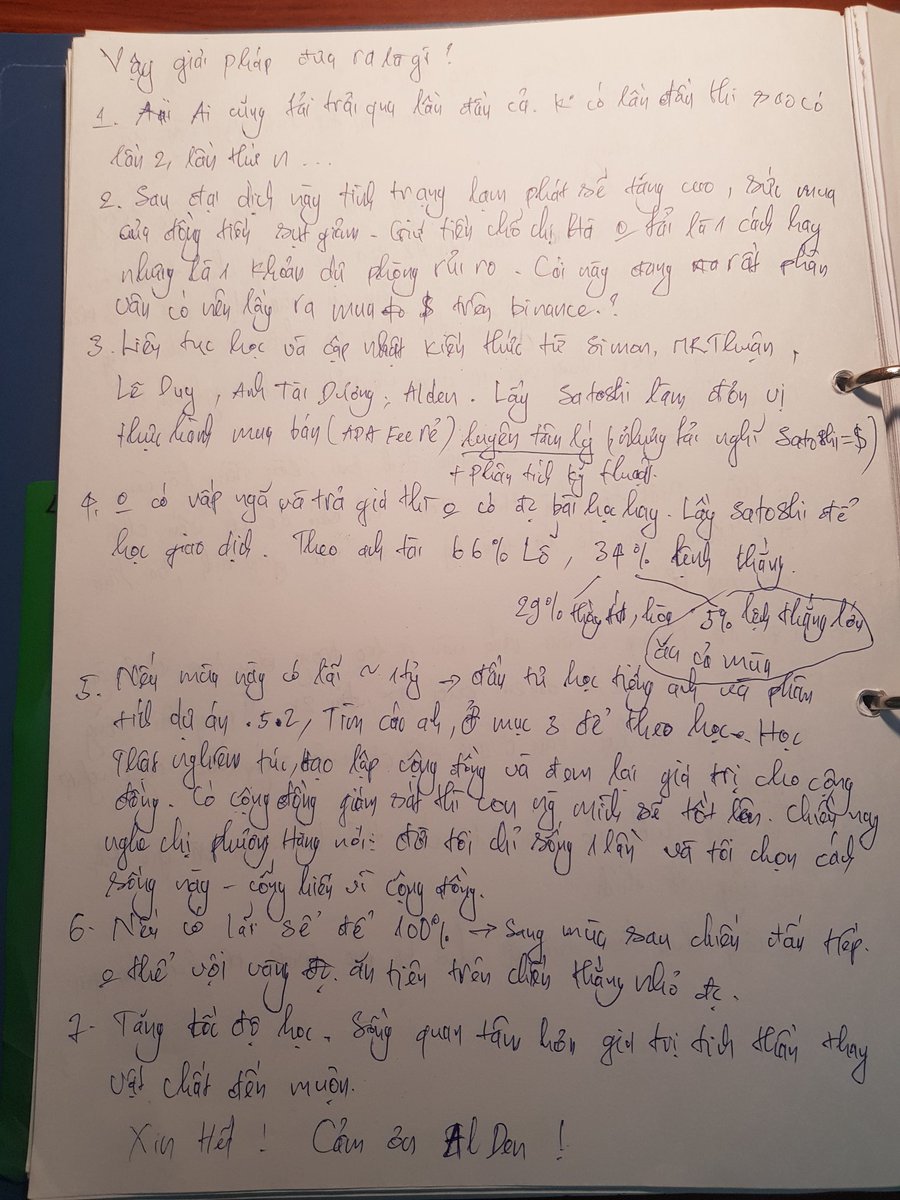 Vậy giải pháp đưa ra là gì?
1. Ai cũng fải trải qua lần đầu cả. K có lần đầu thì sao có
lần 2, lần thứ n ...
2. Sau đại dịch này tình trạng lạm phát sẽ tăng cao, sức mua
của đồng tiền sụt giảm - Giữ tiền chỗ chị Hà o fải là 1 cách hay
nhưng là 1 khoản dự phòng rủi ro - Cái này đang rất phân
vân có nên lấy ra mua $ trên binance.?
3. Liên tục học và cập nhật kiến thức từ Simon, MR Thuận,
Lê Duy, Anh Tài Dương, Alden. Lấy Satoshi làm đơn vị
thực hành mua bán (ADA Fee rẻ) luyện tâm lý (nhưng fải nghĩ Satoshi=$)
+ Phân tích kỹ thuật.
4. o có vấp ngã và trả giá thì o có đc bài học hay. Lấy Satoshi để
học giao dịch. Theo anh tài 66% Lỗ, 34% lệnh thắng.
29% thắng ít, hòa 5% lệnh thắng lớn
ăn cả mùa
5. Nếu mùa này có lãi ~ 1tỷ → đầu tư học tiếng anh và phân
tích dự án .5.2, Tìm các anh, ở mục 3 để theo học. Học
thật nghiêm túc, tạo lập cộng đồng và đem lại giá trị cho cộng
đồng. Có cộng đồng giám sát thì con ng mình sẽ tốt lên. Chiều nay
nghe chị phượng Hằng nói: đời tôi chỉ sống 1 lần và tôi chọn cách
sống này - cống hiến vì cộng đồng.
6. Nếu có lãi sẽ để 100% → sang mùa sau chiến đấu tiếp.
o thể vội vàng ăn tiền trên chiến thắng nhỏ đc.
7. Tăng tốc độ học. Sống quan tâm hơn giá trị tinh thần thay
vật chất đến muộn.
Xin Hết! Cảm ơn Al Den!